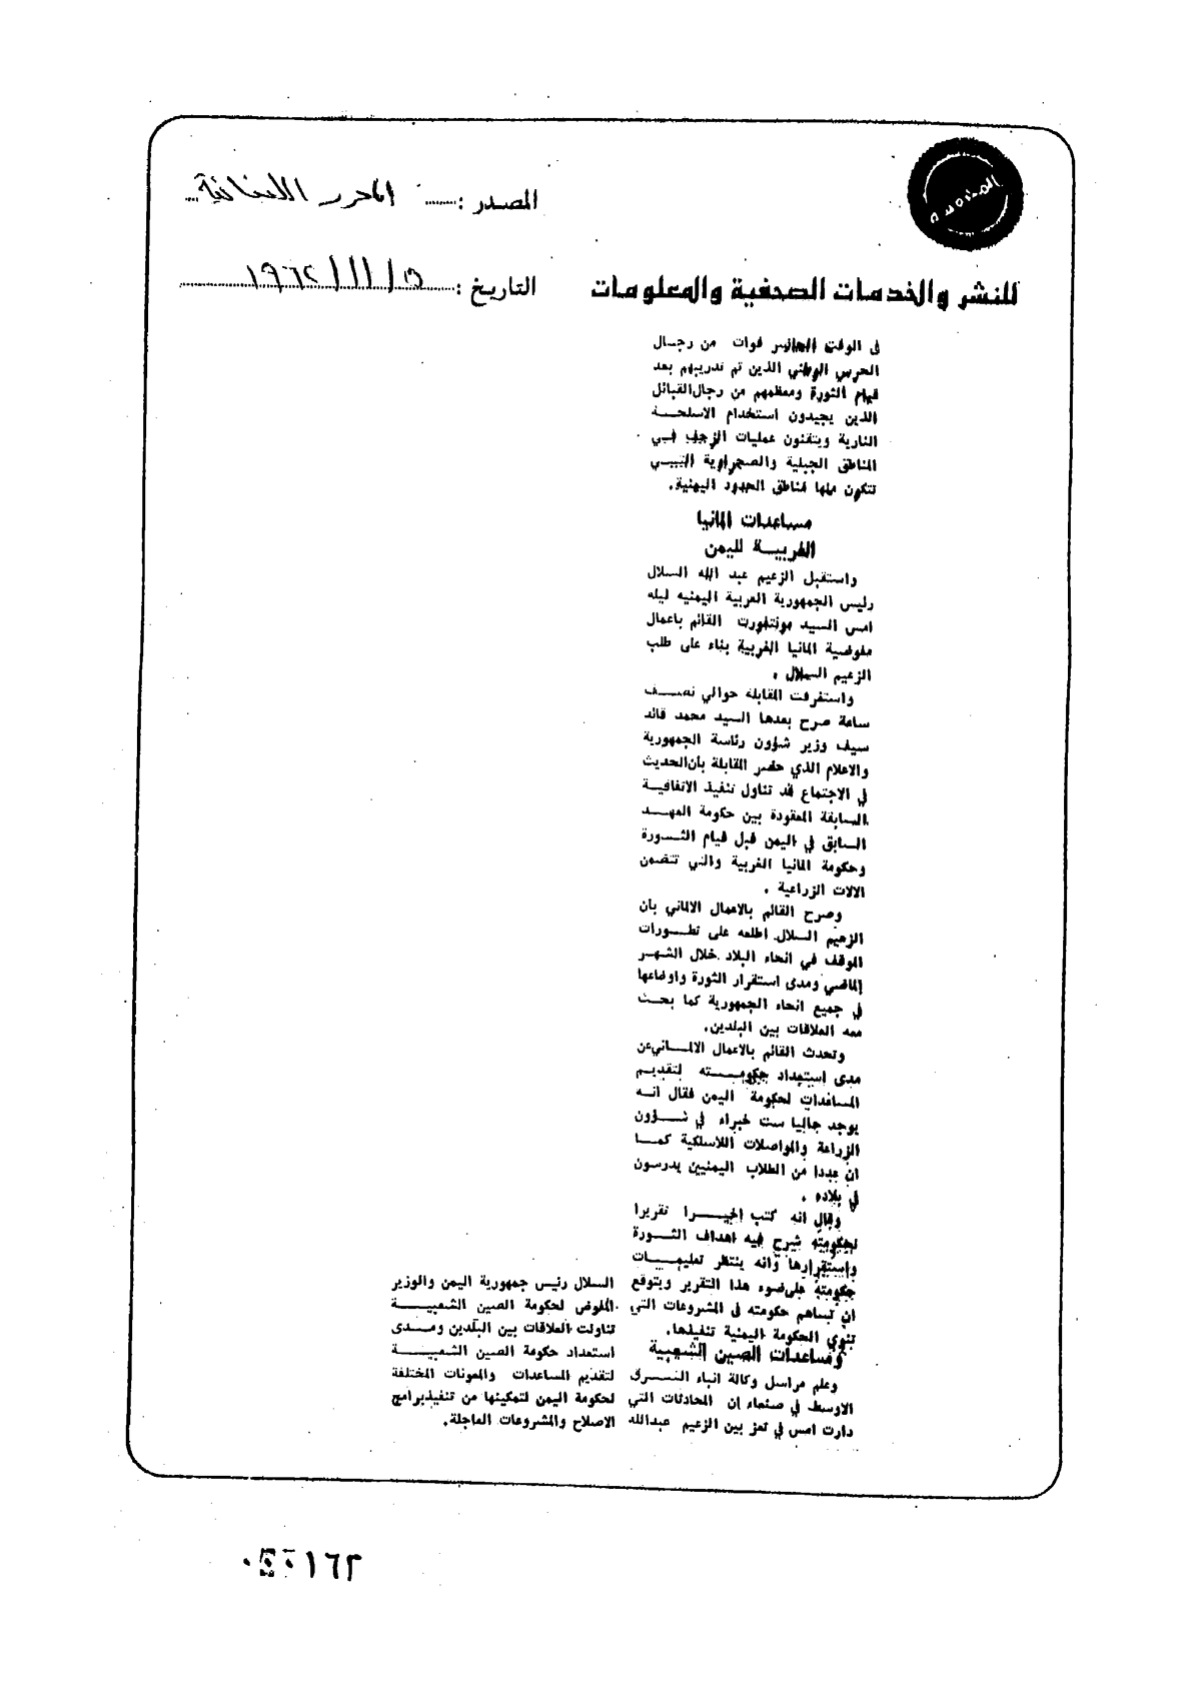 المصدر : المحرر اللبنانية
التاريخ : ٥ / ١١ / ١٩٦٢
للنشر والخدمات الصحفية والمعلومات
في الوقت الحاضر قوات من رجال
الحرس الوطني الذين تم تدريبهم بعد
قيام الثورة ومعظمهم من رجال القبائل
الذين يجيدون استخدام الاسلحة
النارية ويتقنون عمليات الزحف في
المناطق الجبلية والصحراوية التي
تتكون منها مناطق الحدود اليمنية.
مساعدات المانيا
الغربية لليمن
واستقبل الزعيم عبد الله السلال
رئيس الجمهورية العربية اليمنيه ليله
امس السيد القائم باعمال
مفوضية المانيا الغربية بناء على طلب
الزعيم السلال .
واستغرقت المقابلة حوالي نصف
ساعة صرح بعدها السيد محمد قائد
سيف وزير شؤون رئاسة الجمهورية
والاعلام الذي حضر المقابلة بان الحديث
في الاجتماع قد تناول تنفيذ الاتفاقية
السابقة المعقودة بين حكومة العهد
السابق في اليمن قبل قيام الثورة
وحكومة المانيا الغربية والتي تتضمن
الالات الزراعية .
وصرح القائم بالاعمال الالماني بان
الزعيم السلال اطلعه على تطورات
الموقف في انحاء البلاد خلال الشهر
الماضي ومدى استقرار الثورة واوضاعها
في جميع انحاء الجمهورية كما بحث
معه العلاقات بين البلدين.
وتحدث القائم بالاعمال الالماني عن
مدى استعداد حكومته لتقديم
المساعدات لحكومة اليمن فقال انه
يوجد حاليا ست خبراء في شؤون
الزراعة والمواصلات اللاسلكية كما
ان عددا من الطلاب اليمنيين يدرسون
في بلاده .
وقال انه كتب اخيرا تقريرا
لحكومته شرح فيه اهداف الثورة
واستقرارها وانه ينتظر تعليمات
حكومته على ضوء هذا التقرير ويتوقع
ان تساهم حكومته في المشروعات التي
تنوي الحكومة اليمنية تنفيذها.
ومساعدات الصين الشعبية
وعلم مراسل وكالة انباء الشرق
الاوسط في صنعاء ان المحادثات التي
دارت امس في تعز بين الزعيم عبدالله
السلال رئيس جمهورية اليمن والوزير
المفوض لحكومة الصين الشعبية
تناولت العلاقات بين البلدين ومدى
استعداد حكومة الصين الشعبية
لتقديم المساعدات والمعونات المختلفة
لحكومة اليمن لتمكينها من تنفيذ برامج
الاصلاح والمشروعات العاجلة.